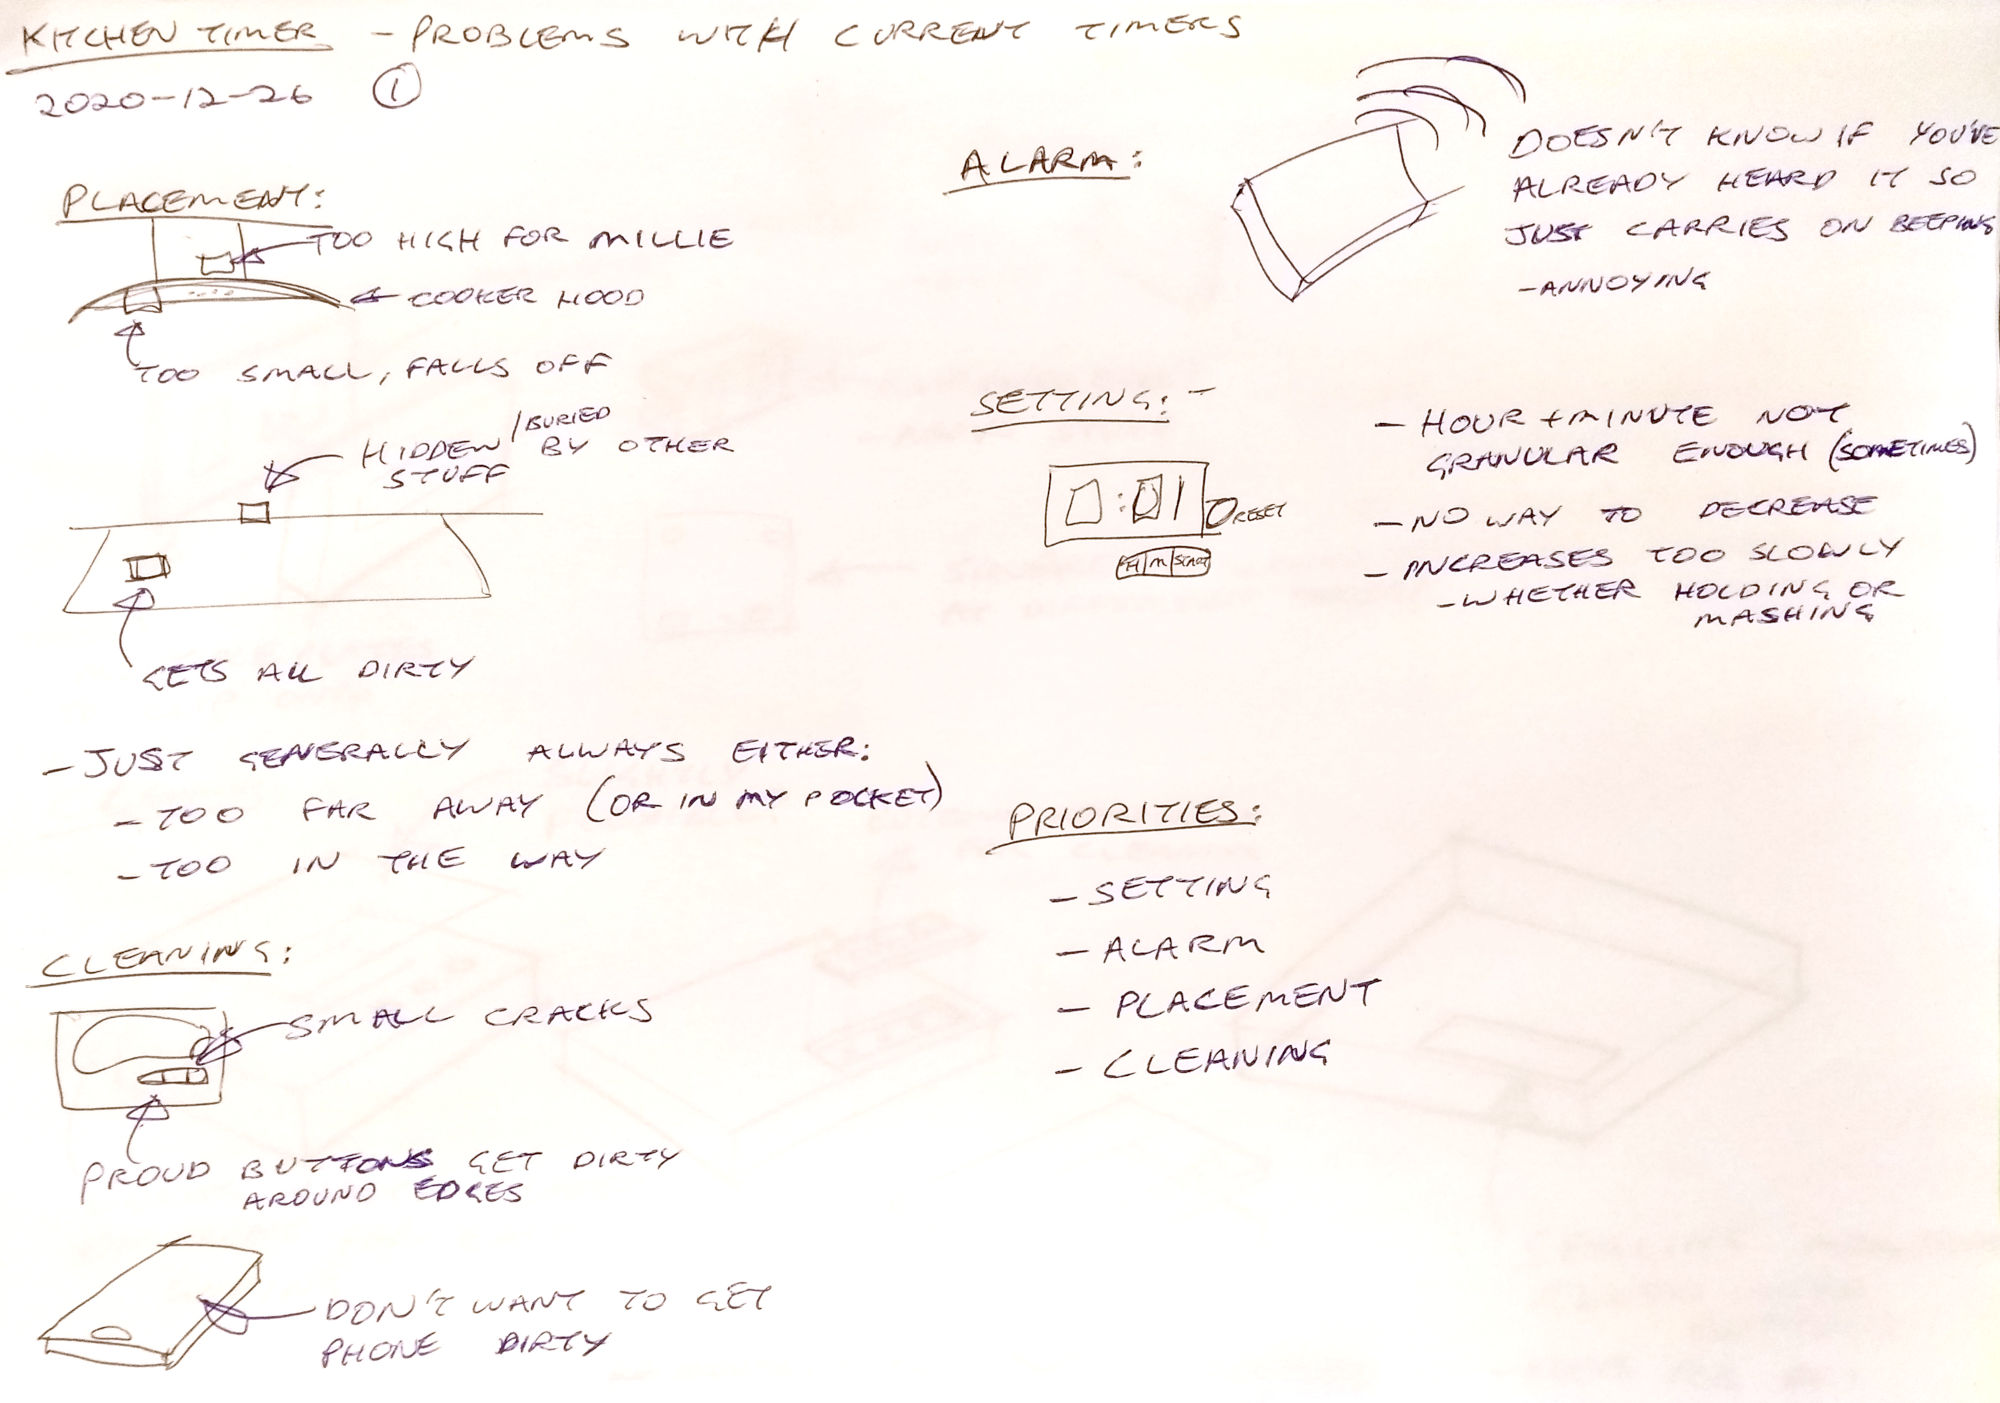 KITCHEN TIMER - PROBLEMS WITH CURRENT TIMERS
2020-12-26 ①
PLACEMENT:
TOO HIGH FOR MILLIE
COOKER HOOD
TOO SMALL, FALLS OFF
HIDDEN /BURIED BY OTHER
STUFF
GETS ALL DIRTY
- JUST GENERALLY ALWAYS EITHER:
- TOO FAR AWAY (OR IN MY POCKET)
- TOO IN THE WAY
CLEANING:
SMALL CRACKS
PROUD BUTTONS GET DIRTY
AROUND EDGES
DON'T WANT TO GET
PHONE DIRTY
ALARM:
DOESN'T KNOW IF YOU'VE
ALREADY HEARD IT SO
JUST CARRIES ON BEEPING
- ANNOYING
SETTING: -
0:01
RESET
H M START
- HOUR + MINUTE NOT
GRANULAR ENOUGH (SOMETIMES)
- NO WAY TO DECREASE
- INCREASES TOO SLOWLY
- WHETHER HOLDING OR
MASHING
PRIORITIES:
- SETTING
- ALARM
- PLACEMENT
- CLEANING